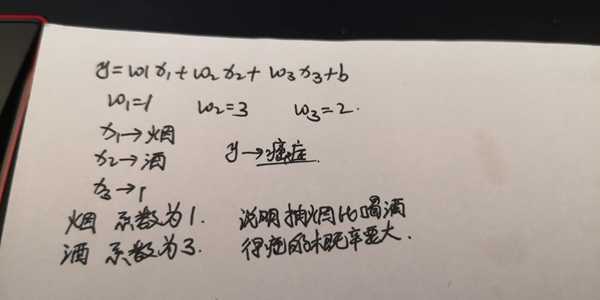 y=w1x₁+w₂x₂+w₃x₃+b
w₁=1 w₂=3 w₃=2.
x₁→烟
x₂→酒 y→癌症
x₃→
烟 系数为1. 说明抽烟比喝酒
酒 系数为3. 得癌的概率要大.